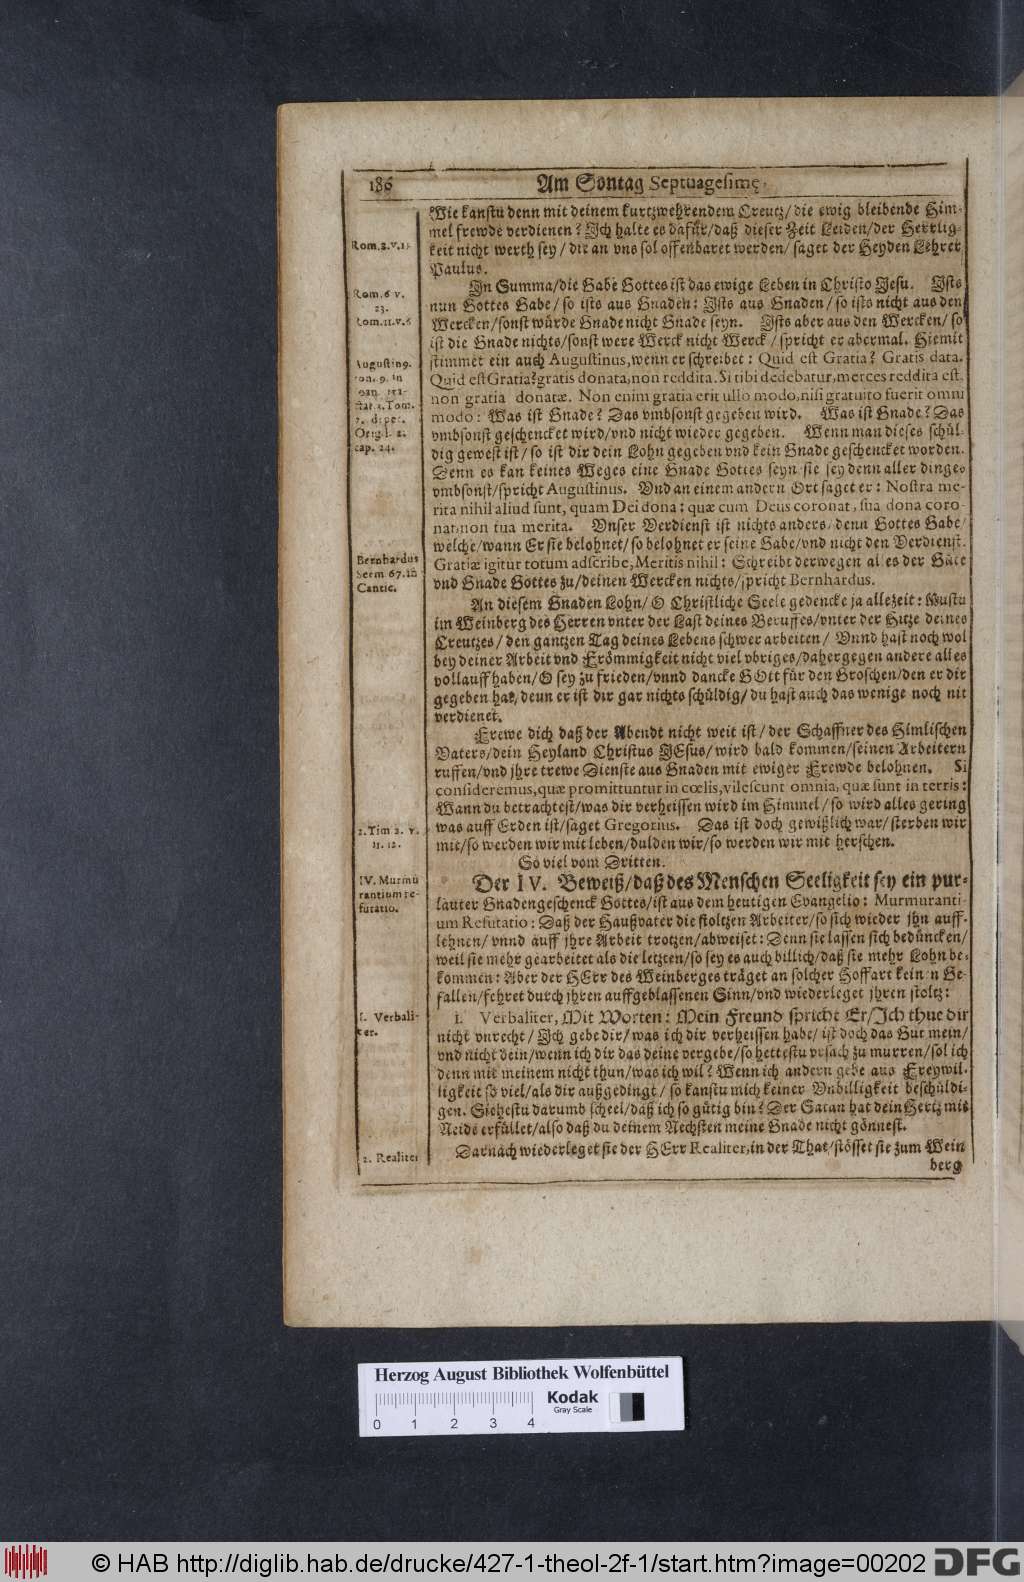 186
Am Sontag Septuagesimę.
Wie kanstu denn mit deinem kurtzwehrendem Creutz/ die ewig bleibende Him-
mel frewde verdienen? Ich halte es dafür/ daß dieser Zeit Leiden/ der Herrlig-
keit nicht werth sey/ die an vns sol offenbaret werden/ saget der Heyden Lehrer
Paulus.
In Summa/ die Gabe Gottes ist das ewige Leben in Christo Jesu. Ists
nun Gottes Gabe/ so ists aus Gnaden: Ists aus Gnaden/ so ists nicht aus den
Wercken/ sonst würde Gnade nicht Gnade seyn. Ists aber aus den Wercken/ so
ist die Gnade nichts/ sonst were Werck nicht Werck/ spricht er abermal. Hiemit
stimmet ein auch Augustinus, wenn er schreibet: Quid est Gratia? Gratis data.
Quid est Gratia? gratis donata, non reddita. Si tibi dedebatur, merces reddita est,
non gratia donatæ. Non enim gratia erit ullo modo, nisi gratuito fuerit omni
modo: Was ist Gnade? Das vmbsonst gegeben wird. Was ist Gnade? Das
vmbsonst geschencket wird/ vnd nicht wieder gegeben. Wenn man dieses schül-
dig gewest ist/ so ist dir dein Lohn gegeben vnd kein Gnade geschencket worden.
Denn es kan keines Weges eine Gnade Gottes seyn sie sey denn aller dinge
vmbsonst/ spricht Augustinus. Vnd an einem andern Ort saget er: Nostra me-
rita nihil aliud sunt, quam Dei dona: quæ cum Deus coronat, sua dona coro-
nat, non tua merita. Vnser Verdienst ist nichts anders/ denn Gottes Gabe/
welche/ wann Er sie belohnet/ so belohnet er seine Gabe/ vnd nicht den Verdienst.
Gratiæ igitur totum adscribe, Meritis nihil: Schreibt derwegen alles der Güte
vnd Gnade Gottes zu/ deinen Wercken nichts/ spricht Bernhardus.
An diesem Gnaden Lohn/ O Christliche Seele gedencke ja allezeit: Mustu
im Weinberg des Herren vnter der Last deines Beruffes/ vnter der Hitze deines
Creutzes/ den gantzen Tag deines Lebens schwer arbeiten/ Vnnd hast noch wol
bey deiner Arbeit vnd Frömmigkeit nicht viel vbriges/ dahergegen andere alles
vollauff haben/ O sey zu frieden/ vnnd dancke GOtt für den Groschen/ den er dir
gegeben hat, denn er ist dir gar nichts schüldig/ du hast auch das wenige noch nit
verdienet.
Frewe dich daß der Abendt nicht weit ist/ der Schaffner des Himlischen
Vaters/ dein Heyland Christus JEsus/ wird bald kommen/ seinen Arbeitern
ruffen/ vnd jhre trewe Dienste aus Gnaden mit ewiger Frewde belohnen. Si
consideremus, quæ promittuntur in cœlis, vilescunt omnia, quæ sunt in terris:
Wann du betrachtest/ was dir verheissen wird im Himmel/ so wird alles gering
was auff Erden ist/ saget Gregorius. Das ist doch gewißlich war/ sterben wir
mit/ so werden wir mit leben/ dulden wir/ so werden wir mit herschen.
So viel vom Dritten.
Der IV. Beweiß/ daß des Menschen Seeligkeit sey ein pur-
lauter Gnadengeschenck Gottes/ ist aus dem heutigen Evangelio: Murmuranti-
um Refutatio: Daß der Haußvater die stoltzen Arbeiter/ so sich wieder jhn auff-
lehnen/ vnnd auff jhre Arbeit trotzen/ abweiset: Denn sie lassen sich bedüncken/
weil sie mehr gearbeitet als die letzten/ so sey es auch billich/ daß sie mehr Lohn be-
kommen: Aber der HErr des Weinberges träget an solcher Hoffart keinen Ge-
fallen/ fehret durch jhren auffgeblassenen Sinn/ vnd wiederleget jhren stoltz:
I. Verbaliter, Mit Worten: Mein Freund spricht Er/ Ich thue dir
nicht vnrecht/ Ich gebe dir/ was ich dir verheissen habe/ ist doch das Gut mein/
vnd nicht dein/ wenn ich dir das deine vergebe/ so hettestu vrsach zu murren/ sol ich
denn mit meinem nicht thun/ was ich wil? Wenn ich andern gebe aus Freywil-
ligkeit so viel/ als dir außgedingt/ so kanstu mich keiner Vnbilligkeit beschüldi-
gen. Siehestu darumb scheel/ daß ich so gütig bin? Der Satan hat dein Hertz mit
Neide erfüllet/ also daß du deinem Nechsten meine Gnade nicht gönnest.
Darnach wiederleget sie der HErr Realiter, in der That/ stösset sie zum Wein
berg
Rom. 8. v. 18
Rom. 6 v.
23.
Rom. 11. v. 6
Augustin9.
tom. 9. in
Joan. tra-
Tom.
Orig. l. 2.
cap. 24.
Bernhardus
Serm 67. in
Cantic.
2. Tim 2. v.
11. 12.
IV. Murmu
rantium re-
futatio.
I. Verbali-
ter.
2. Realiter
Herzog August Bibliothek Wolfenbüttel
Kodak
Gray Scale
0 1 2 3 4
© HAB http://diglib.hab.de/drucke/427-1-theol-2f-1/start.htm?image=00202
DFG